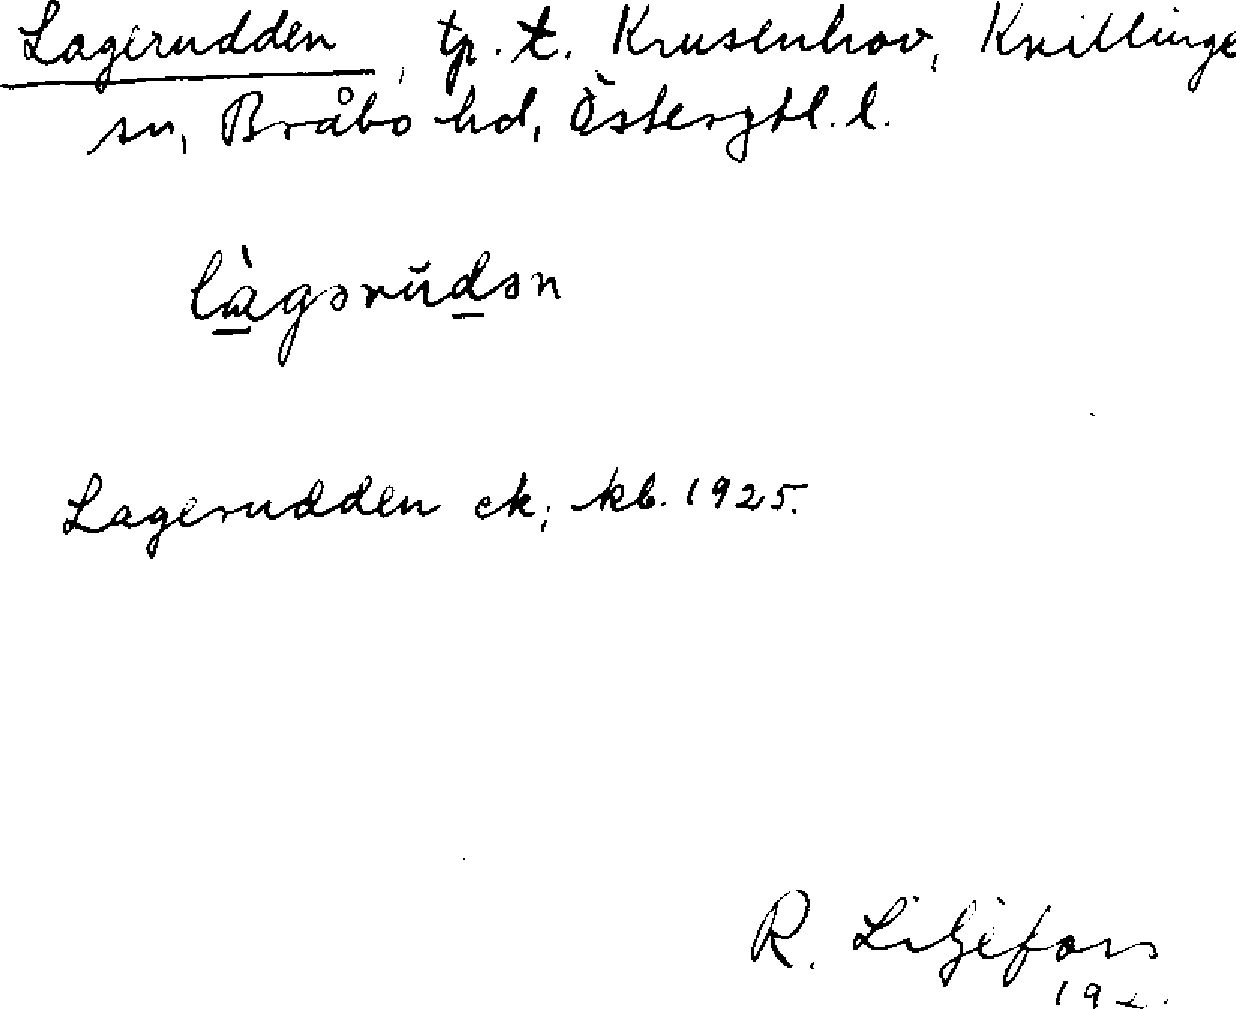 Lagerudden, tp. t. Krusenhov, Kvillinge
sn, Bråbo hd, Östergtl. l.
làgərŭdən
Lagerudden ek, kb. 1925.
R. Liljefors